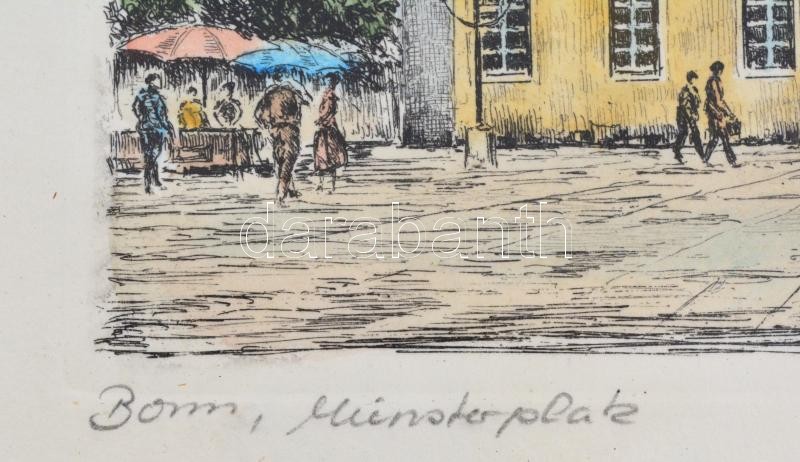 darabanth
Bonn, Münsterplatz